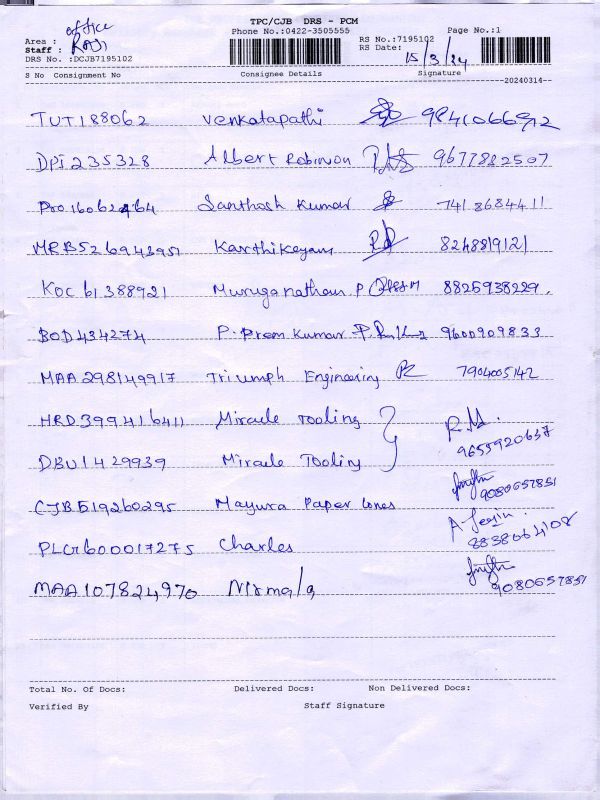 TPC/CJB DRS - PCM
Phone No.:0422-3505555 Page No.:1
office
Area : Raji RS No.:7195102
Staff : RS Date: 15/3/24
DRS No. :DCJB7195102
S No Consignment No Consignee Details Signature
20240314
TUT188062 Venkatapathi
DPI235328 Albert Robinson 9677882507
Santhosh Kumar 7418684411
MRB526943951 Karthikeyan 8248819121
KOC61388921 Muruganathan P 8825938229.
BOD434274 P. Prem Kumar 9600909833
MAA298149917 Triumph Engineering 7904005142
HRD399416411 Miracle Tooling
9655920637
DBU1429939 Miracle Tooling
9080657851
CJB519260295 Mayura Paper Cones
PLG600017275 Charles 8838064108
MAA107824970 Nirmala 9080657851
Total No. Of Docs: Delivered Docs: Non Delivered Docs:
Verified By Staff Signature